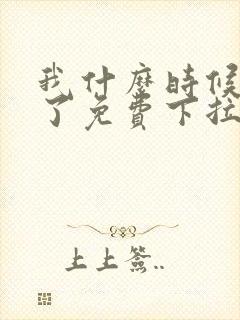 我什麼時候
了免費下拉
上上簽..